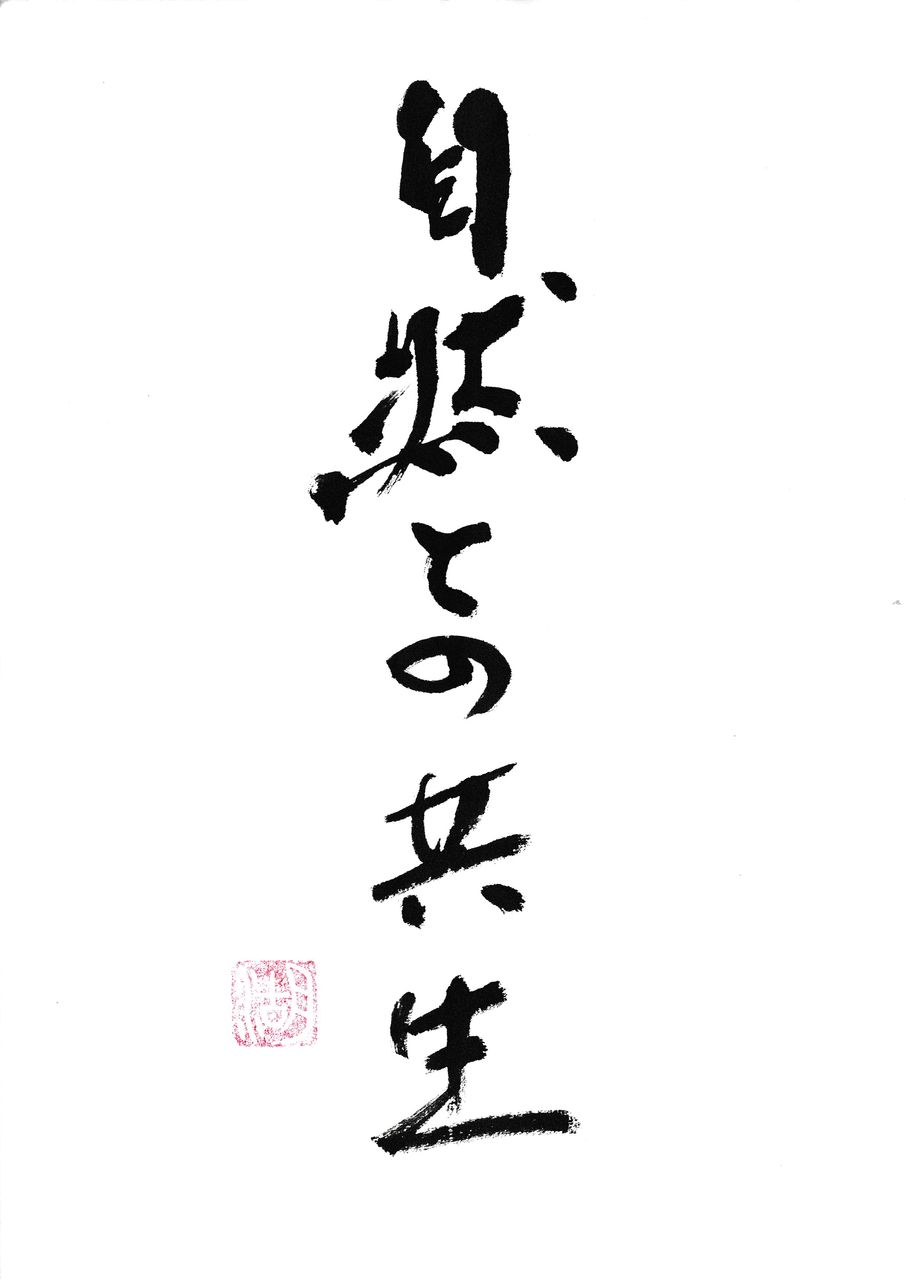 自然との共生